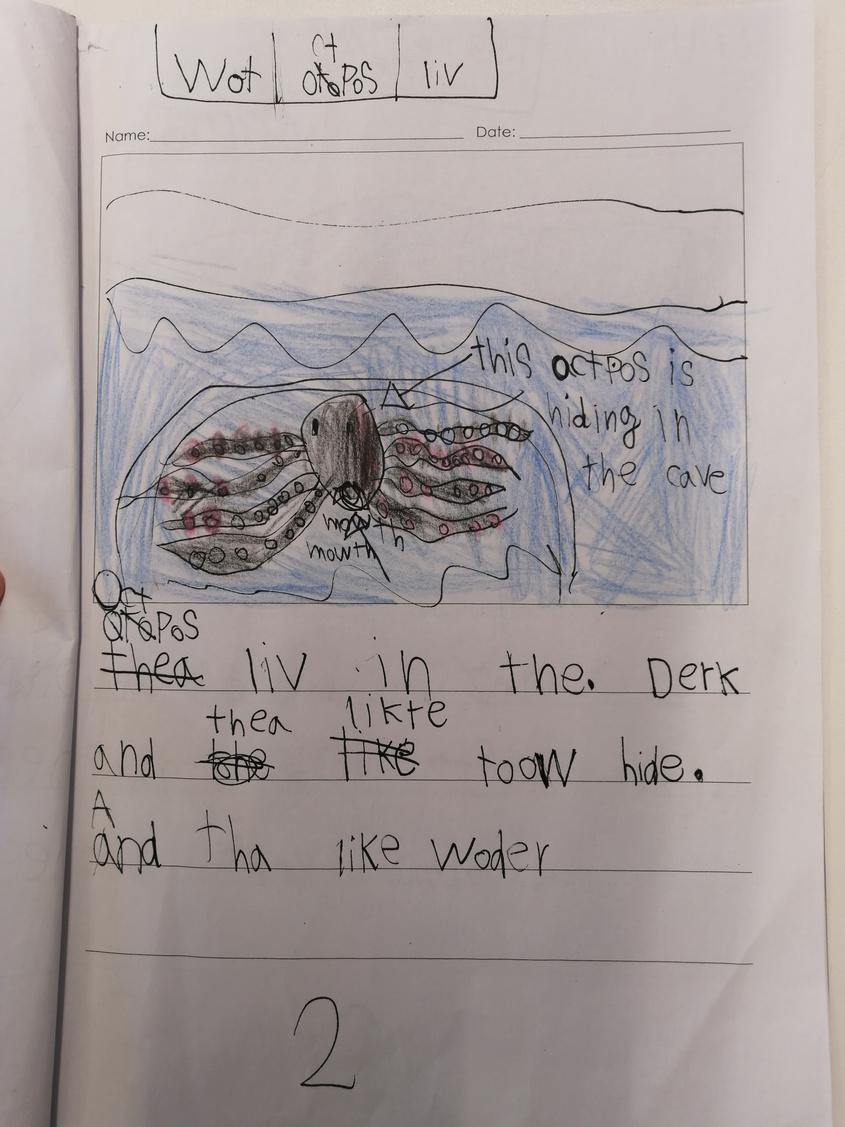 Wot
Oct
otoPoS
liv
Name:
Date:
this octPoS is
hiding in
the cave
mowth
mowth
Oct
otoPoS
thea liv in the. Derk
thea likte
and the like toow hide.
A
and tha like woder
2